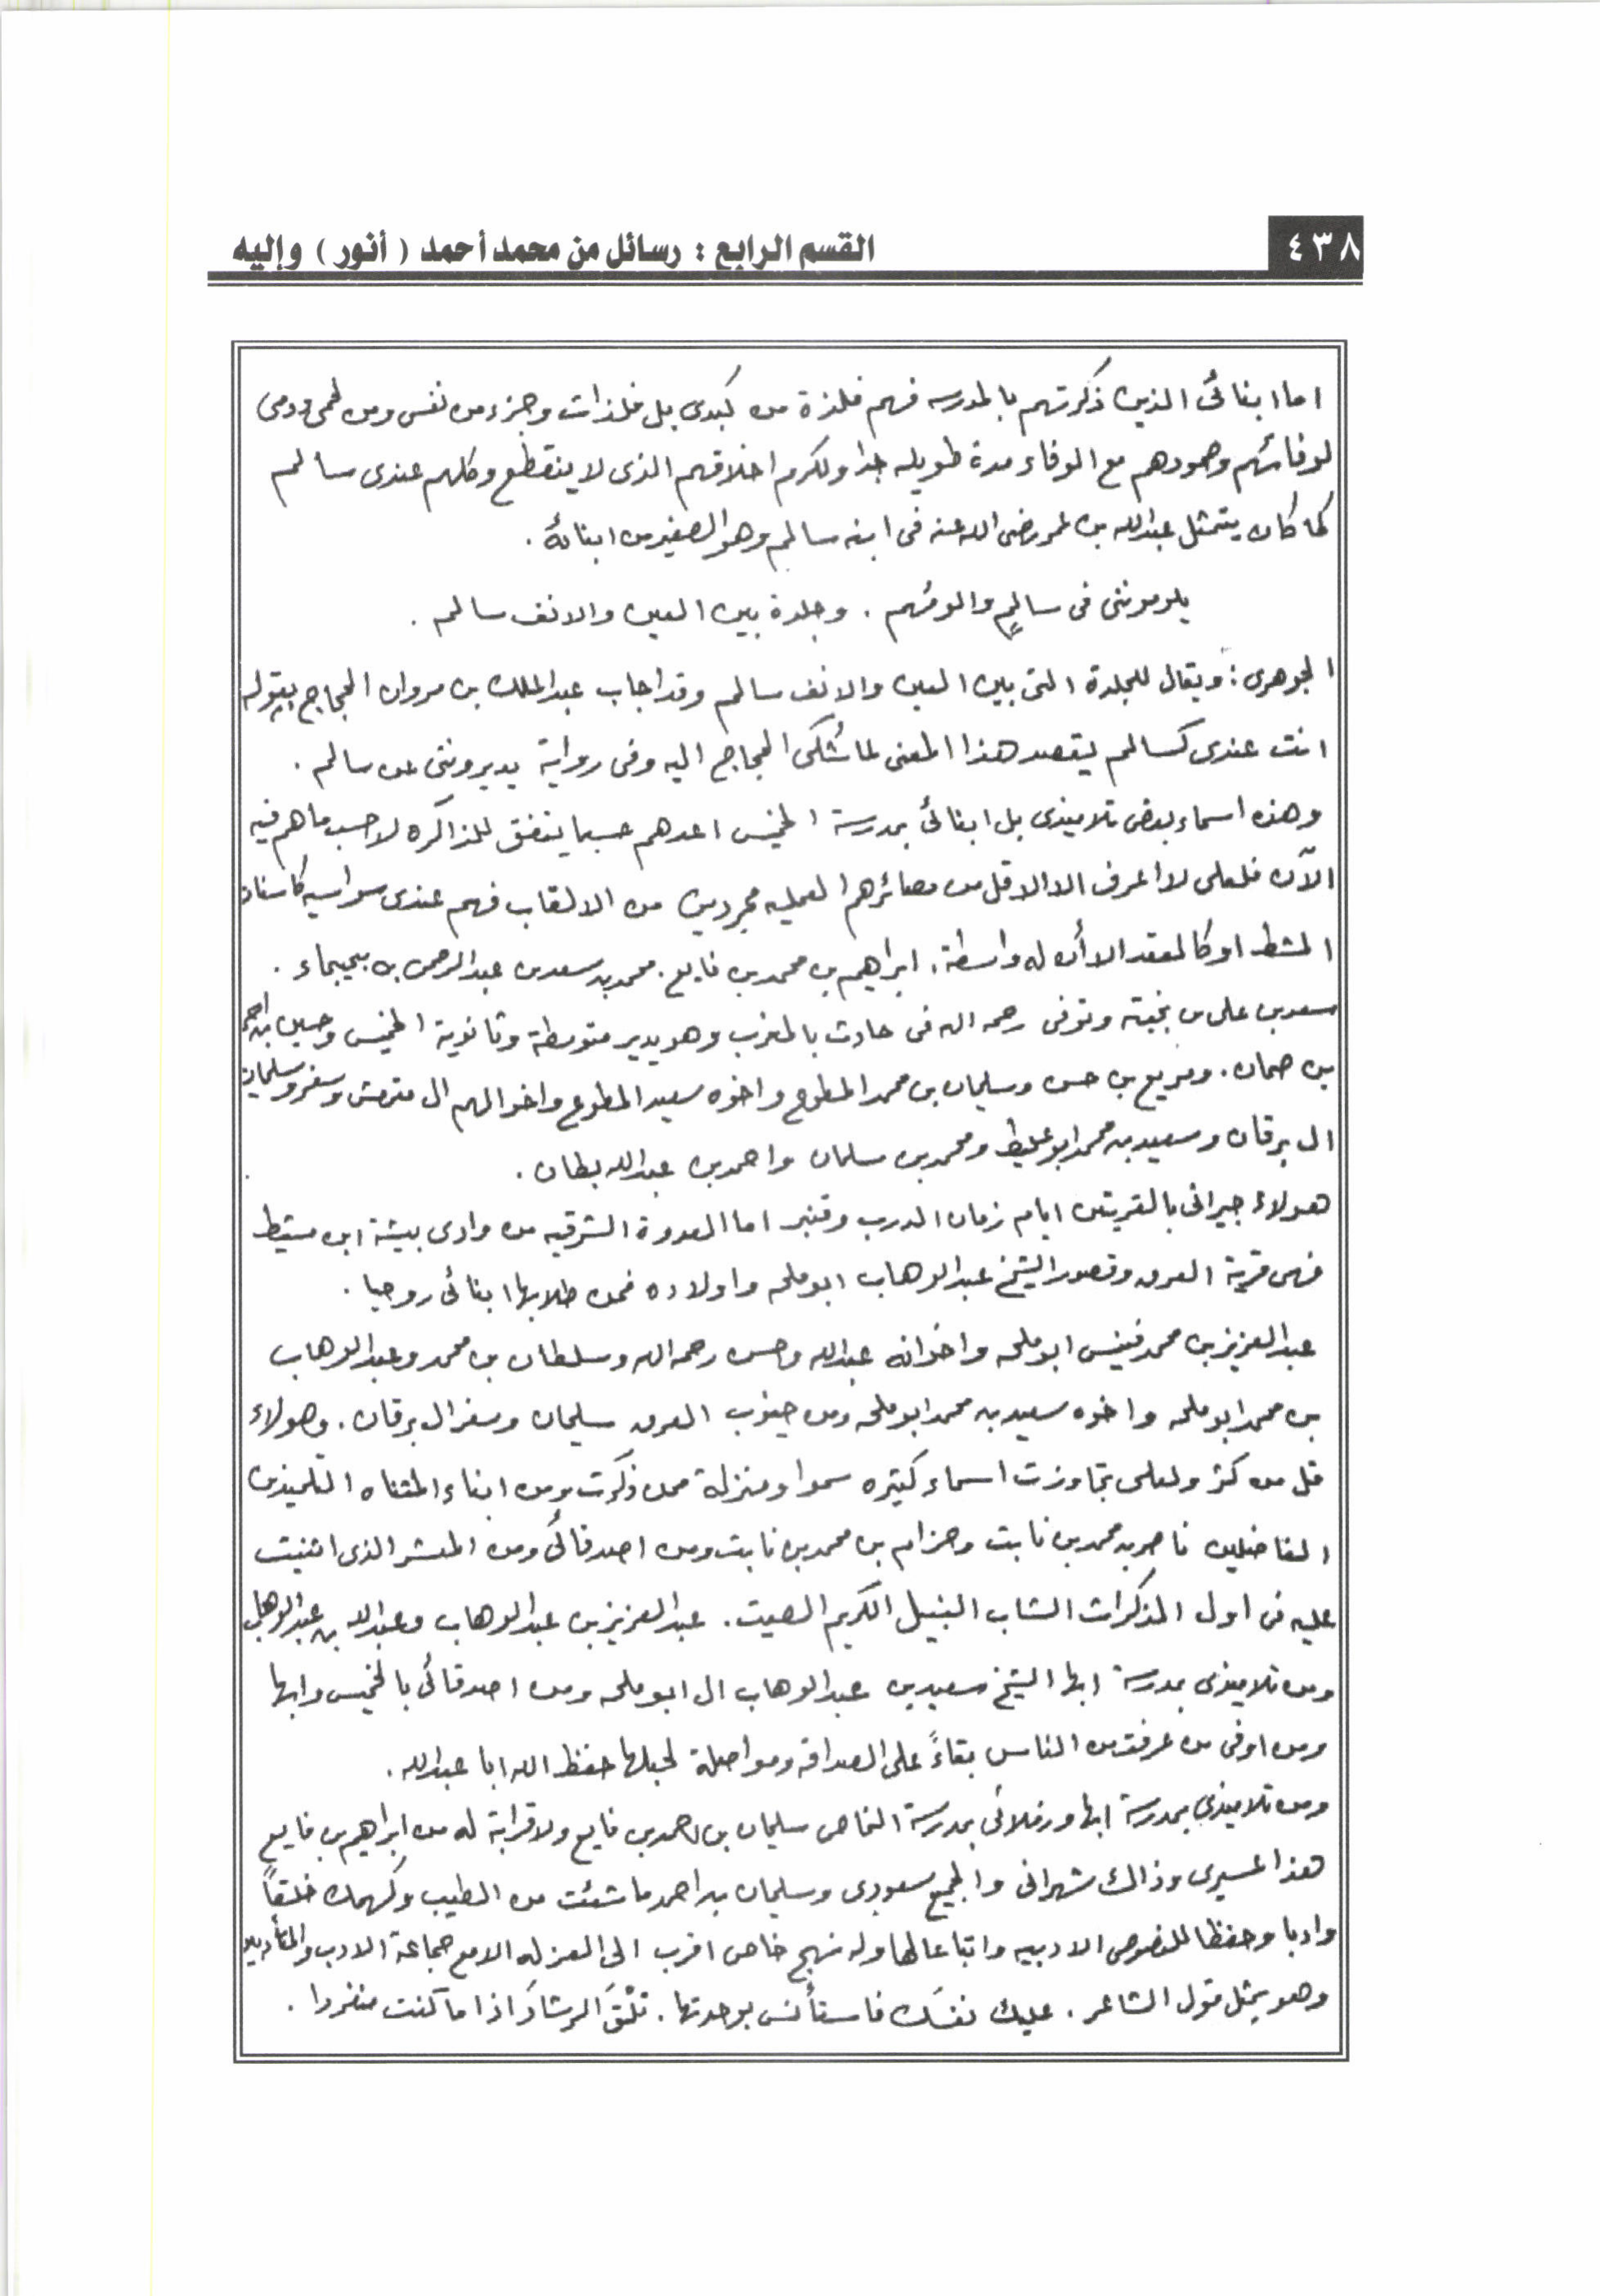 ٤٣٨
القسم الرابع : رسائل من محمد أحمد ( أنور ) وإليه
اما ابنائى الذين ذكرتهم بالمدرسه فهم فلذة من كبدى بل فلذات وجزء من نفسى ومن لحمى ودمى
لوفائهم وصمودهم مع الوفاء مدة طويله جدا ولكرم اخلاقهم الذى لا ينقطع وكلهم عندى سالم
كما كان يتمثل عبدالله بن عمر رضى الله عنه فى ابنه سالم وهو الصغير من ابنائه .
يلوموننى فى سالمٍ والومُهم . وجلدة بين العين والانف سالم .
الجوهرى : ويقال للجلدة التى بين العين والانف سالم وقد اجاب عبدالملك بن مروان الحجاج بقوله
انت عندى كسالم يقصد هذا المعنى لما شُكى الحجاج اليه وفى رواية يديروننى عن سالم .
وهذه اسماء بعض تلاميذى بل ابنائى بمدرسة الخميس اعدهم حسبما يتفق للذاكره لا حسب ما هم فيه
الآن فلعلى لا اعرف الا الاقل من مصائرهم العمليه مجردين من الالقاب فهم عندى سواسيه كاسنان
المشط او كالعقد الا أن له واسطة . ابراهيم بن محمد بن فايع . محمد بن سعد بن عبدالرحمن بن بجيجاء .
سعد بن على بن بخيته وتوفى رحمه الله فى حادث بالمغرب وهو يدير متوسطة وثانوية الخميس وحسين بن احمد
بن صمان . ومريع بن حسن وسليمان بن محمد المطوع واخوه سعيد المطوع واخوالهم ال مترمش وسفر وسليمان
ال برقان وسعيد بن محمد ابو غليظ ومحمد بن سلمان واحمد بن عبدالله بطان .
هولاء جيرانى بالقريتين ايام زمان الدرب وقنبر اما العدوة الشرقيه من وادى بيشة ابن مشيط
فهى قرية العرق وقصور الشيخ عبدالوهاب ابو ملحه واولاده فمن طلابها ابنائى روحيا .
عبدالعزيز بن محمد فينيس ابو ملحه واخوانه عبدالله وحسن رحمه الله وسلطان بن محمد وعبدالوهاب
بن محمد ابو ملحه واخوه سعيد بن محمد ابو ملحه ومن جنوب العرق سليمان وسفر ال برقان . وهولاء
قل من كثر ولعلى تجاوزت اسماء كثيره سموا ومنزلة ممن ذكرت ومن ابناء المثناه التلميذين
الفاضلين ناصر بن محمد بن نابت وحزام بن محمد بن نابت ومن اصدقائى ومن المعشر الذى اثنيت
عليه فى اول المذكرات الشاب النبيل الكريم الصيت . عبدالعزيز بن عبدالوهاب وعبدالله بن عبدالوهاب
ومن تلاميذى بمدرسة ابها الشيخ سعيد بن عبدالوهاب ال ابو ملحه ومن اصدقائى بالخميس وابها
ومن اوفى من عرفت من الناس بقاءً على الصداقه ومواصلة لحبلها حفظ الله ابا عبدالله .
ومن تلاميذى بمدرسة ابها وزملائى بمدرسة النماص سليمان بن احمد بن فايع ولا قرابة له من ابراهيم بن فايع
هذا عسيرى وذاك شهرانى والجميع سعودى وسليمان بن احمد ما شئت من الطيب وكهمك خلقاً
وادبا وحفظا للنصوص الادبيه واتباعا لها وله نهج خاص اقرب الى العزله الا مع جماعة الادب والمتأدبين
وهو يمثل قول الشاعر . عليك نفسَك فاستأنس بوحدتها . تلْقَ الرشادَ اذا ما كنت منفردا .